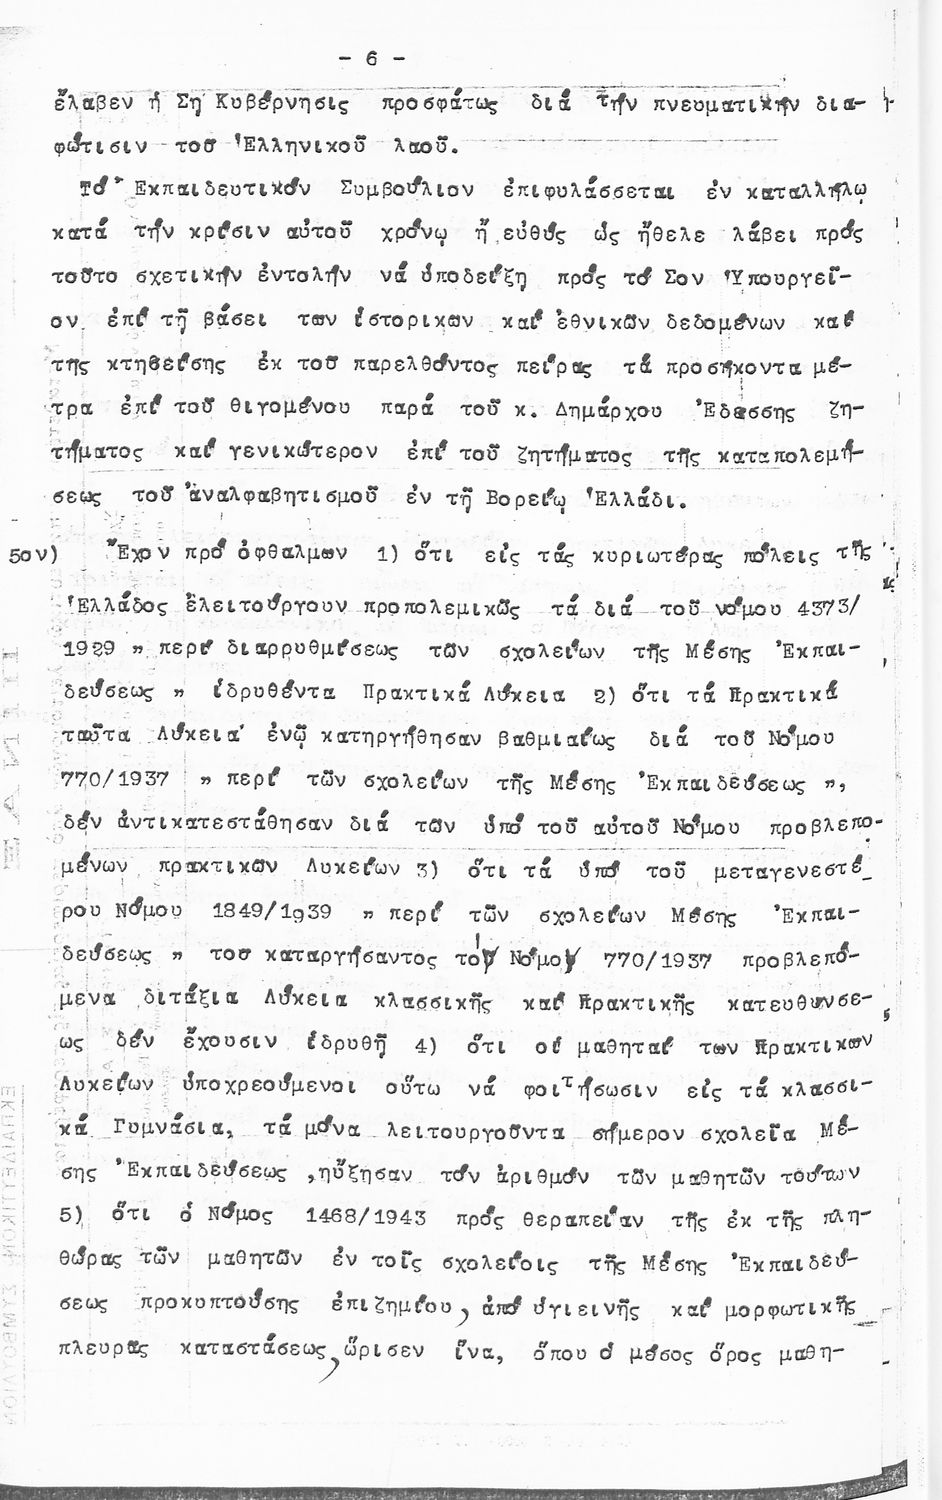 - 6 -
ἔλαβεν ἡ Ση Κυβέρνησις προσφάτως διά τήν πνευματικήν δια-
φώτισιν τοῦ Ἑλληνικοῦ λαοῦ.
Τό Ἐκπαιδευτικόν Συμβούλιον ἐπιφυλάσσεται ἐν καταλλήλῳ
κατά τήν κρίσιν αὐτοῦ χρόνῳ ἤ εὐθύς ὡς ἤθελε λάβει πρός
τοῦτο σχετικήν ἐντολήν νά ὑποδείξῃ πρός τό Σον Ὑπουργεῖ-
ον ἐπί τῇ βάσει των ἱστορικων καί ἐθνικῶν δεδομένων καί
της κτηθείσης ἐκ τοῦ παρελθόντος πείρας τά προσήκοντα μέ-
τρα ἐπί τοῦ θιγομένου παρά τοῦ κ. Δημάρχου Ἐδεσσης ζη-
τήματος καί γενικώτερον ἐπί τοῦ ζητήματος τῆς καταπολεμή-
σεως τοῦ ἀναλφαβητισμοῦ ἐν τῇ Βορείῳ Ἑλλάδι.
5ον) Ἔχον πρό ὀφθαλμων 1) ὅτι εἰς τάς κυριωτέρας πόλεις τῆς
Ἑλλάδος ἐλειτούργουν προπολεμικῶς τά διά τοῦ νόμου 4373/
1929 " περί διαρρυθμίσεως τῶν σχολείων τῆς Μέσης Ἐκπαι-
δεύσεως " ἱδρυθέντα Πρακτικά Λύκεια 2) ὅτι τά Πρακτικά
ταῦτα Λύκεια ἐνῷ κατηργήθησαν βαθμιαίως διά τοῦ Νόμου
770/1937 " περί τῶν σχολείων τῆς Μέσης Ἐκπαιδεύσεως ",
δέν ἀντικατεστάθησαν διά τῶν ὑπό τοῦ αὐτοῦ Νόμου προβλεπο-
μένων πρακτικῶν Λυκείων 3) ὅτι τά ὑπό τοῦ μεταγενεστέ_
ρου Νόμου 1849/1939 " περί τῶν σχολείων Μέσης Ἐκπαι-
δεύσεως " του καταργήσαντος τόν Νόμον 770/1937 προβλεπό-
μενα διτάξια Λύκεια κλασσικῆς καί Πρακτικῆς κατευθυνσε-
ως δέν ἔχουσιν ἱδρυθῆ 4) ὅτι οἱ μαθηταί των Πρακτικων
Λυκείων ὑποχρεούμενοι οὕτω νά φοιτήσωσιν εἰς τά κλασσι-
κά Γυμνάσια, τά μόνα λειτουργοῦντα σήμερον σχολεῖα Μέ-
σης Ἐκπαιδεύσεως ,ηὔξησαν τόν ἀριθμόν τῶν μαθητῶν τούτων
5) ὅτι ὁ Νόμος 1468/1943 πρός θεραπείαν τῆς ἐκ τῆς πλη-
θώρας τῶν μαθητῶν ἐν τοῖς σχολείοις τῆς Μέσης Ἐκπαιδεύ-
σεως προκυπτούσης ἐπιζημίου, ἀπό ὑγιεινῆς καί μορφωτικῆς
πλευρᾶς καταστάσεως, ὥρισεν ἵνα, ὅπου ὁ μέσος ὅρος μαθη-